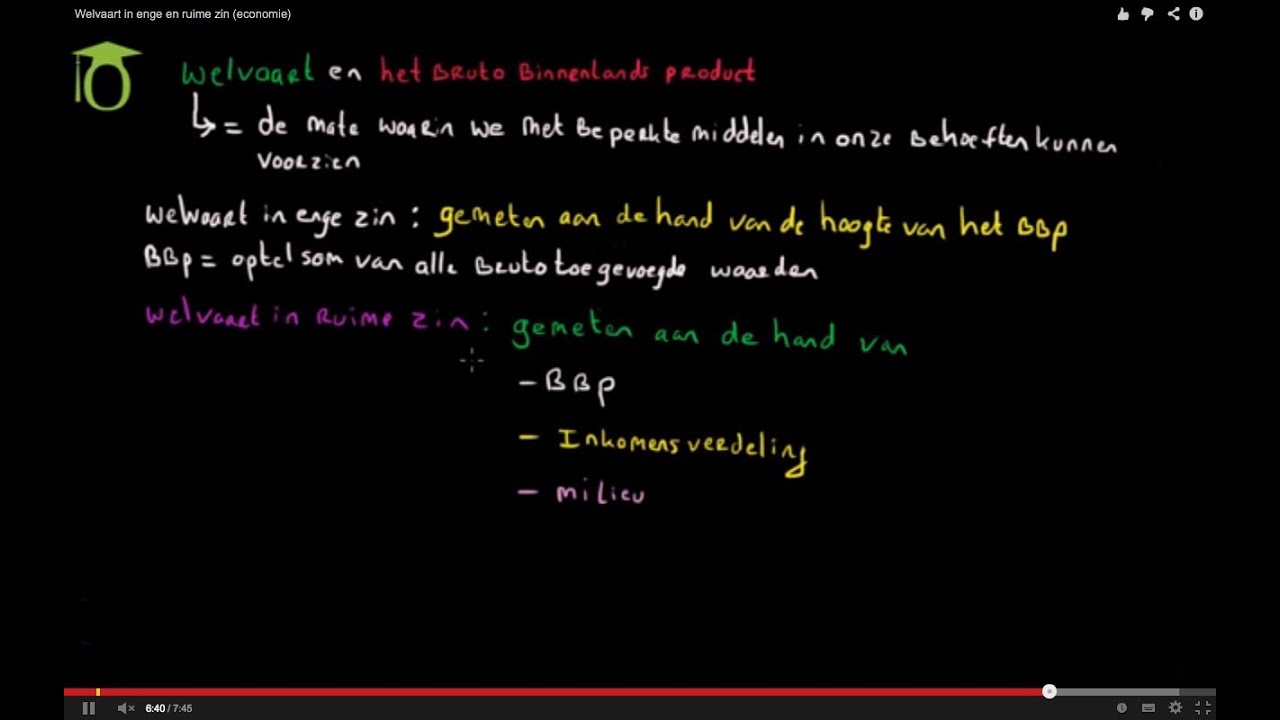 Welvaart in enge en ruime zin (economie)
Welvaart en het Bruto Binnenlands product
= de mate waarin we met beperkte middelen in onze behoeften kunnen
voorzien
Welvaart in enge zin : gemeten aan de hand van de hoogte van het BBp
BBp = optelsom van alle Bruto toegevoegde waarden
Welvaart in Ruime zin : gemeten aan de hand van
- BBp
- Inkomensverdeling
- milieu
6:40 / 7:45